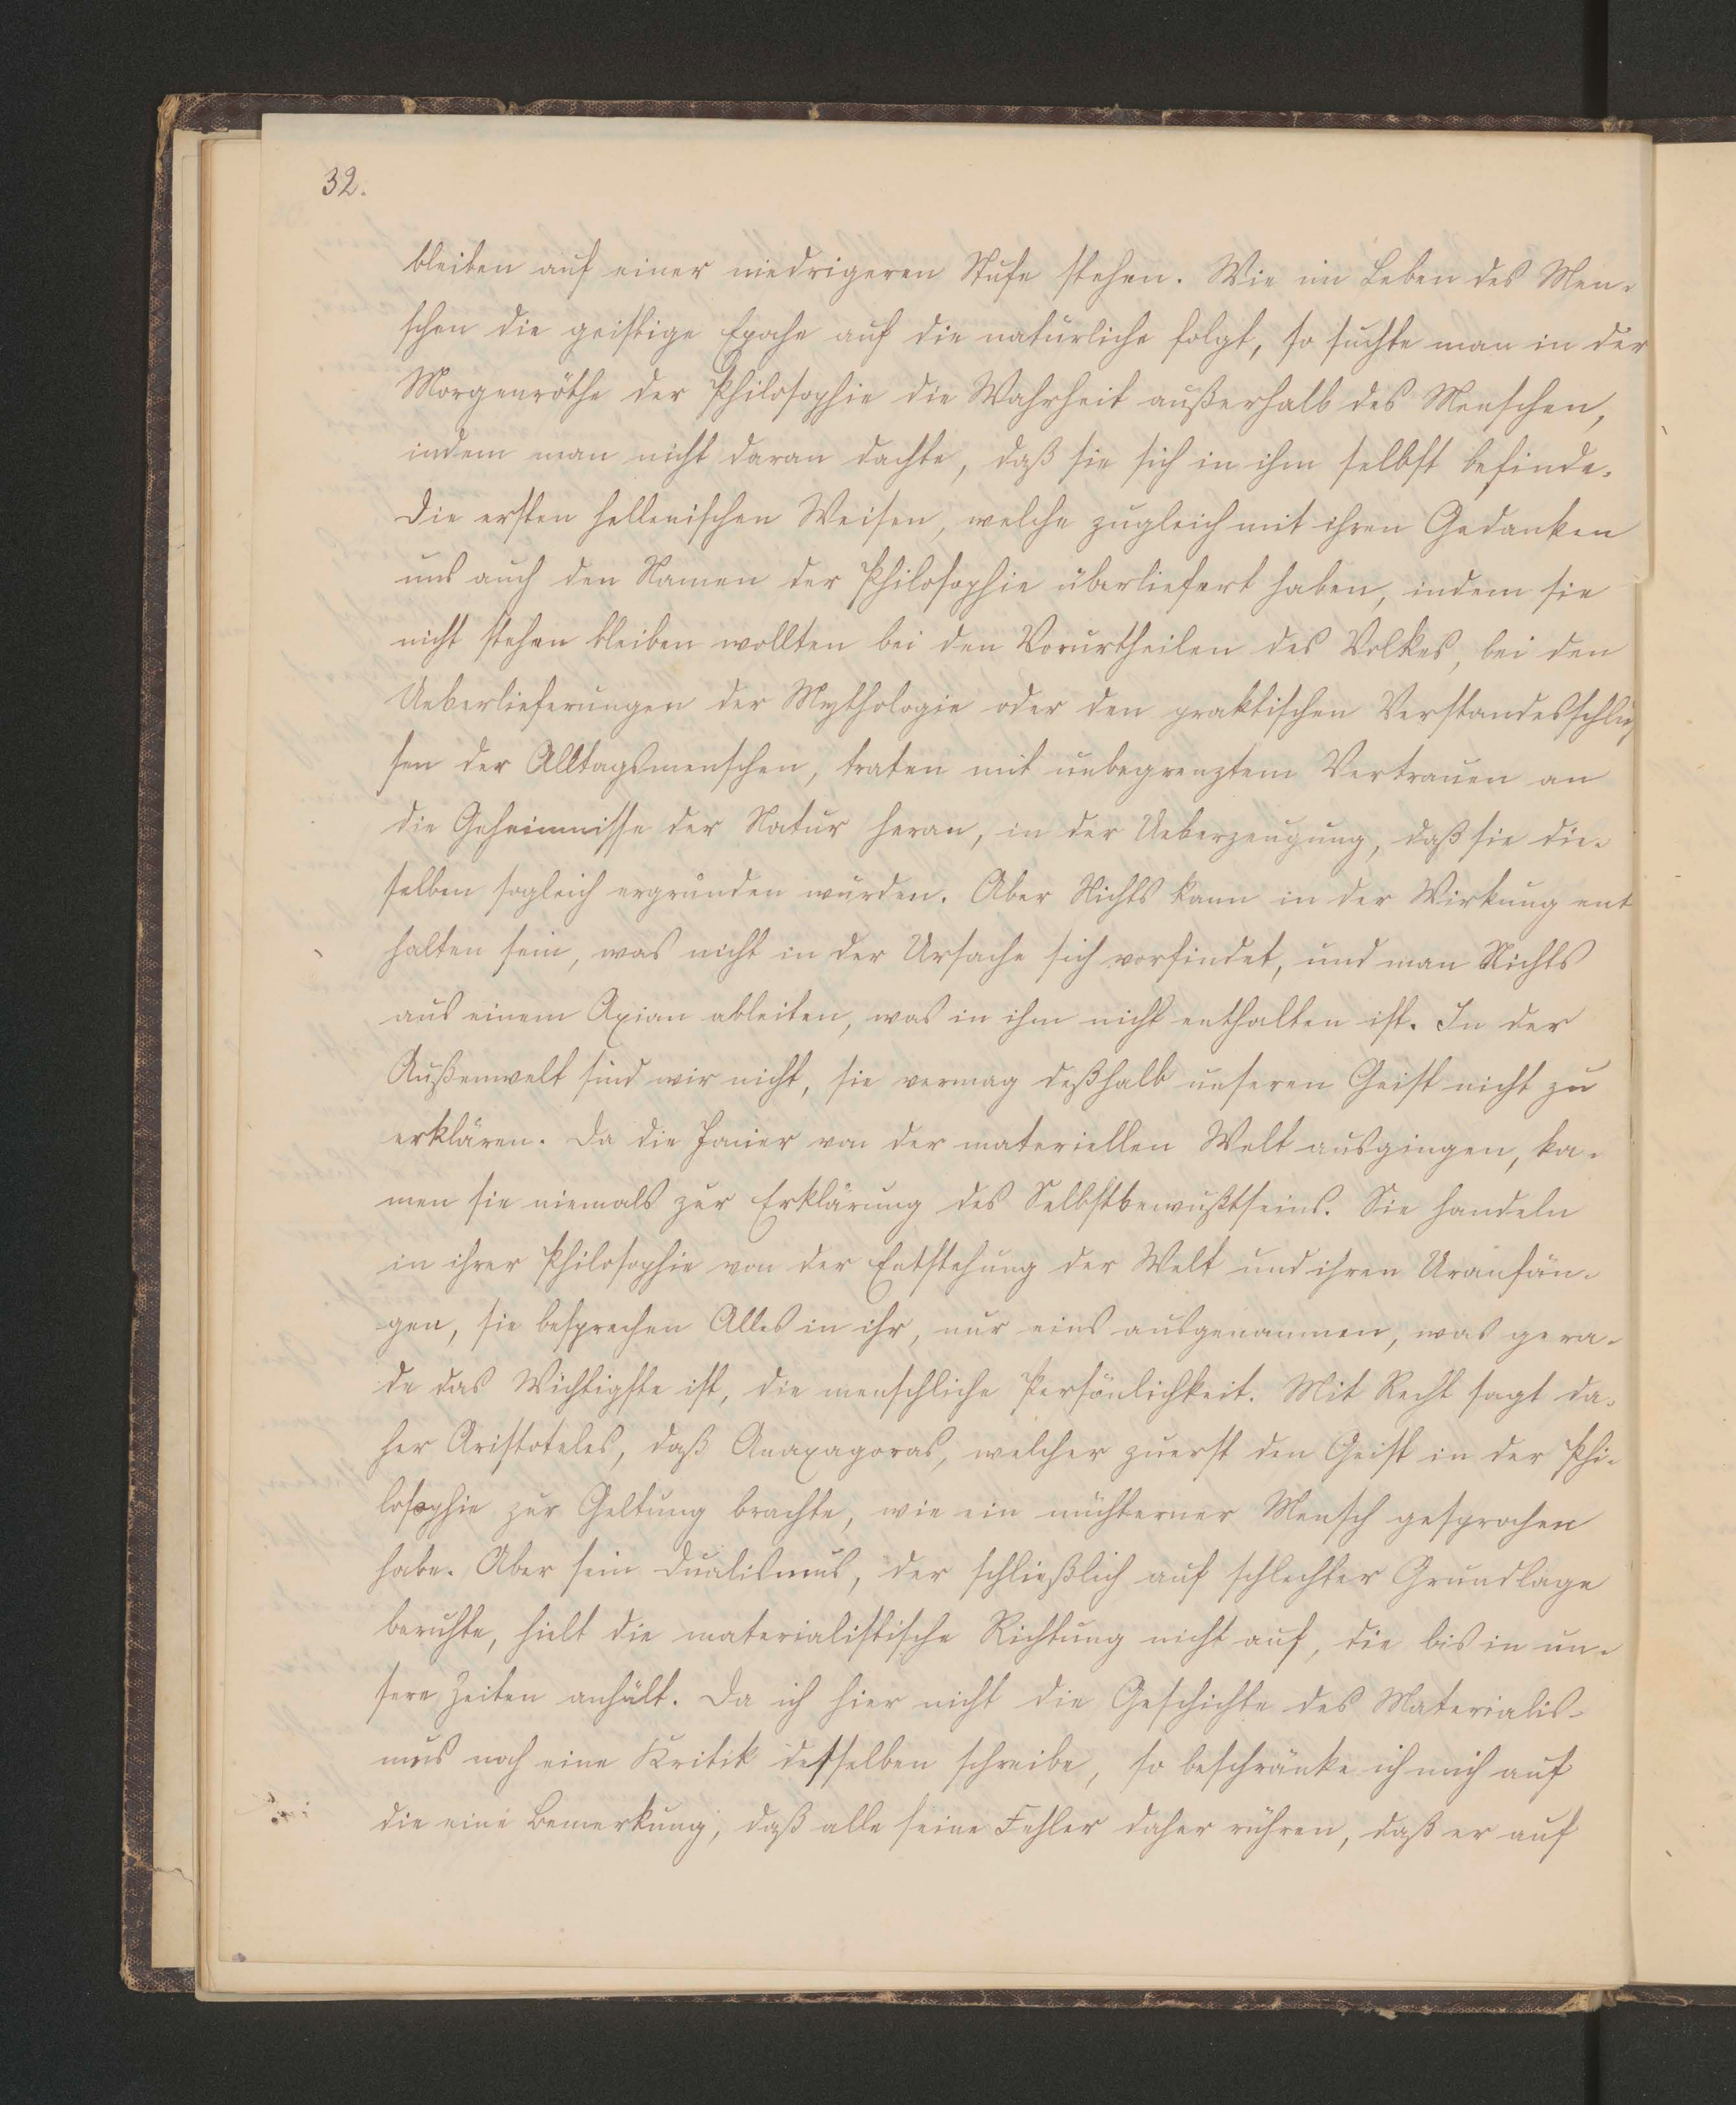 32.
bleiben auf einer niedrigeren Stufe stehen. Wie im Leben des Men-
schen die geistige Epoche auf die natürliche folgt, so suchte man in der
Morgenröthe der Philosophie die Wahrheit außerhalb des Menschen,
indem man nicht daran dachte, daß sie sich in ihm selbst befinde.
Die ersten hellenischen Weisen, welche zugleich mit ihren Gedanken
uns auch den Namen der Philosophie überliefert haben, indem sie
nicht stehen bleiben wollten bei den Vorurtheilen des Volkes, bei den
Ueberlieferungen der Mythologie oder den praktischen Verstandesschlüs
sen der Alltagsmenschen, traten mit unbegrenztem Vertrauen an
die Geheimnisse der Natur heran, in der Ueberzeugung, daß sie die-
selben sogleich ergründen würden. Aber Nichts kann in der Wirkung ent
halten sein, was nicht in der Ursache sich vorfindet, und man Nichts
aus einem Axiom ableiten, was in ihm nicht enthalten ist. In der
Außenwelt sind wir nicht, sie vermag deßhalb unseren Geist nicht zu
erklären. Da die Jonier von der materiellen Welt ausgingen, ka-
men sie niemals zur Erklärung des Selbstbewußtseins. Sie handeln
in ihrer Philosophie von der Entstehung der Welt und ihren Uranfän-
gen, sie besprechen Alles in ihr, nur eins ausgenommen, was gera-
de das Wichtigste ist, die menschliche Persönlichkeit. Mit Recht sagt da-
her Aristoteles, daß Anaxagoras, welcher zuerst den Geist in der Phi-
losophie zur Geltung brachte, wie ein nüchterner Mensch gesprochen
habe. Aber sein Dualismus, der schließlich auf schlechter Grundlage
beruhte, hielt die materialistische Richtung nicht auf, die bis in un-
sere Zeiten anhält. Da ich hier nicht die Geschichte des Materialis-
mus noch eine Kritik desselben schreibe, so beschränke ich mich auf
die eine Bemerkung, daß alle seine Fehler daher rühren, daß er auf